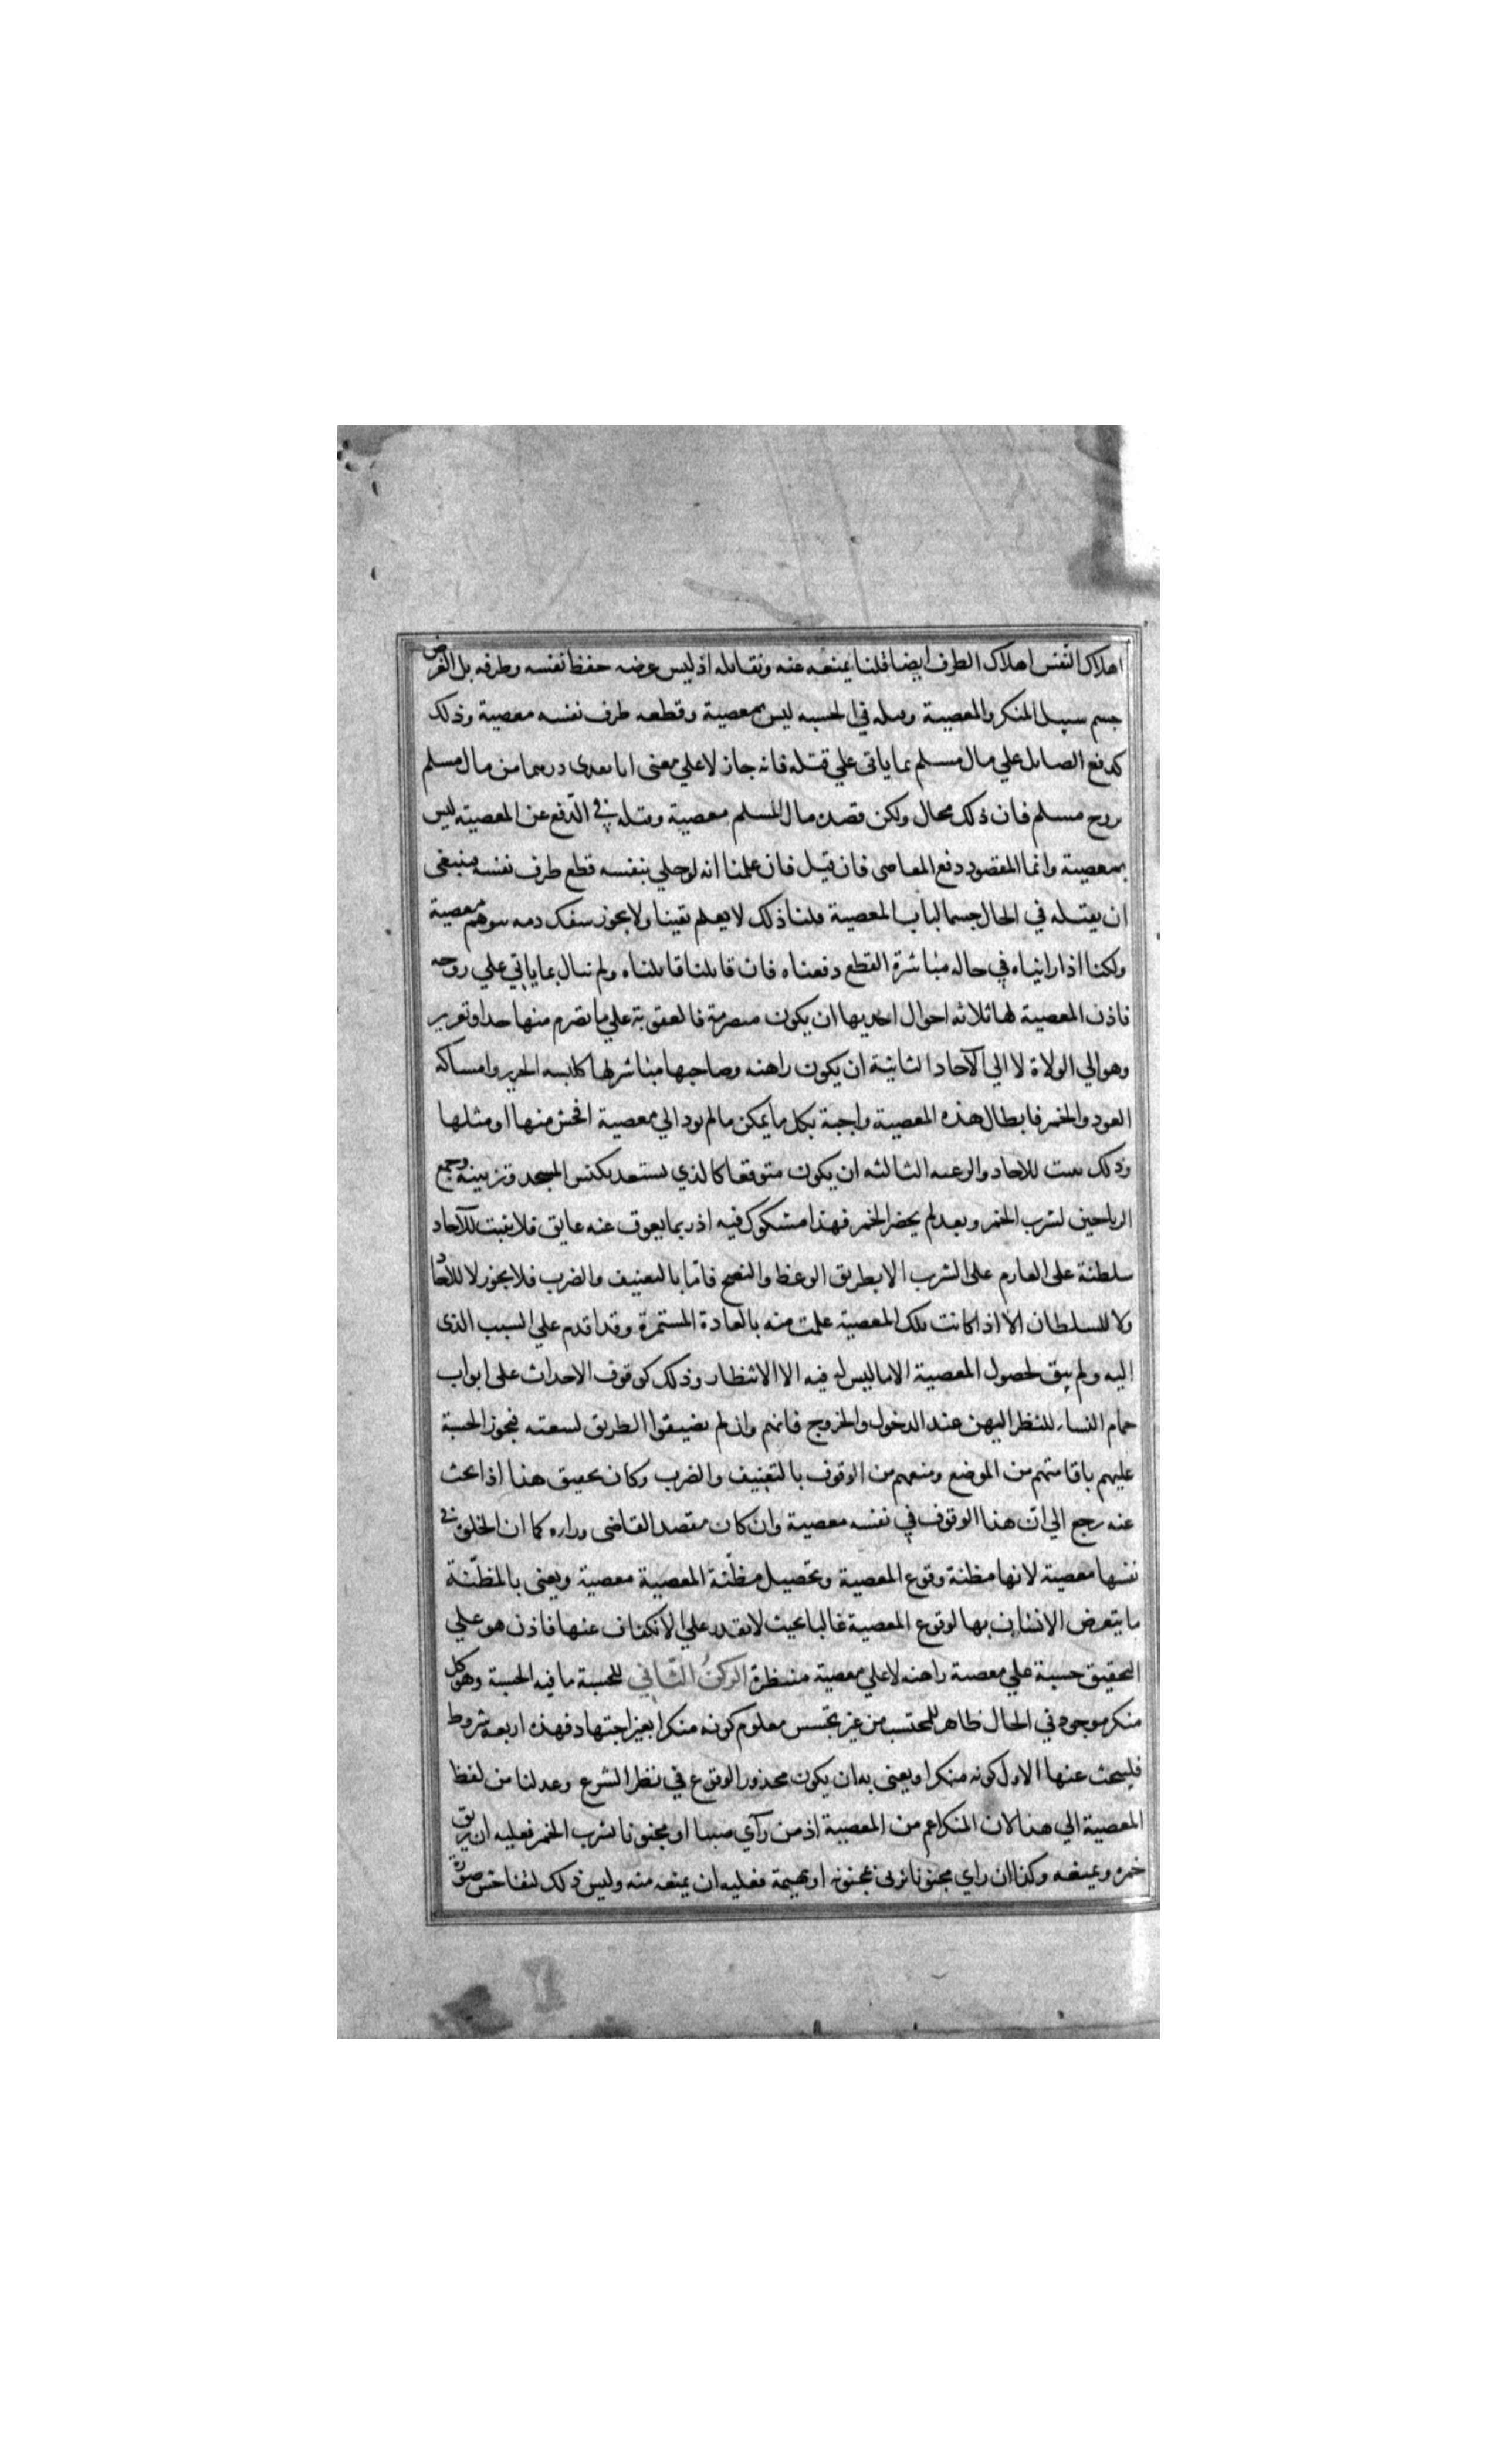 اهلاك النفس اهلاك الطرف ايضا قلنا يمنعه عنه ونقاتله اذ ليس غرضه حفظ نفسه وطرفه بل الغرض
حسم سبيل المنكر والمعصية وقتله في الحسبه ليس بمعصية وقطعه طرف نفسه معصية وذلك
كدفع الصايل علي مال مسلم بما ياتي علي قتله فانه جاز لا علي معنى انا نفدى درهما من مال مسلم
بروح مسلم فان ذلك محال ولكن قصده مال المسلم معصية وقتله في الدّفع عن المعصيته ليس
بمعصيته وانما المقصود دفع المعاصى فان قيل فان علمنا انه لو خلي بنفسه قطع طرف نفسه فينبغى
ان يقتله في الحال حسما لباب المعصية قلنا ذلك لا يعلم يقينا ولا يجوز سفك دمه بتوهم معصية
ولكنا اذا رايناه في حاله مباشرة القطع دفعناه فان قاتلنا قاتلناه ولم نبال بما ياتي علي روحه
فاذن المعصية لها ثلاثه احوال احديها ان يكون متصرمة فالعقوبة علي ما تصرم منها حد او تعزير
وهو الي الولاة لا الي الآحاد الثانية ان يكون راهنه وصاحبها مباشر لها كلبسه الحرير وامساكه
العود والخمر فابطال هذه المعصية واجبة بكل ما يمكن مالم يود الي معصية افحش منها او مثلها
وذلك يثبت للاحاد والرعيه الثالثه ان يكون متوقعا كالذي يستعد بكنس المجلس وتزيينه وجمع
الرياحين لشرب الخمر وبعد لم يحضر الخمر فهذا مشكوك فيه اذ ربما يعوق عنه عايق فلا يثبت للآحاد
سلطنة على العازم على الشرب الا بطريق الوعظ والنصح فامّا بالتعنيف والضرب فلا يجوز لا للآحاد
ولا للسلطان الا اذا كانت تلك المعصية علمت منه بالعادة المستمرة وقد اقدم علي السبب الذى
اليه ولم يبق لحصول المعصية الا ما ليس له فيه الا الانتظار وذلك كوقوف الاحداث على ابواب
حمام النساء للنظر اليهن عند الدخول والخروج فانهم وان لم يضيقوا الطريق لسعته فيجوز الحسبة
عليهم باقامتهم من الموضع ومنعهم من الوقوف بالتعنيف والضرب وكان تحقيق هذا اذا بحث
عنه رجع الي ان هذا الوقوف في نفسه معصية وان كان مقصد القاضى وراءه كما ان الخلوة في
نفسها معصية لانها مظنة وقوع المعصية وتحصيل مظنّة المعصية معصية ويعنى بالمظنّة
ما يتعرض الانسان بها لوقوع المعصية غالبا بحيث لا يقدر علي الانكفاف عنها فاذن هو علي
التحقيق حسبة علي معصية راهنه لا علي معصية منتظرة الركنُ الثّاني للحسبة ما فيه الحسبة وهو كل
منكر موجود في الحال ظاهر للمحتسب من غير تجسس معلوم كونه منكرا بغير اجتهاد فهذه اربعه شروط
فليبحث عنها الاول كونه منكرا ويعنى به ان يكون محذور الوقوع في نظر الشرع وعدلنا من لفظ
المعصية الي هذا لان المنكر اعم من المعصية اذ من رآي صبيا او مجنونا يشرب الخمر فعليه ان يريق
خمره ويمنعه وكذا ان راي مجنونا يزني بمجنونه او بهيمة فعليه ان يمنعه منه وليس ذلك لتفاحش صورة